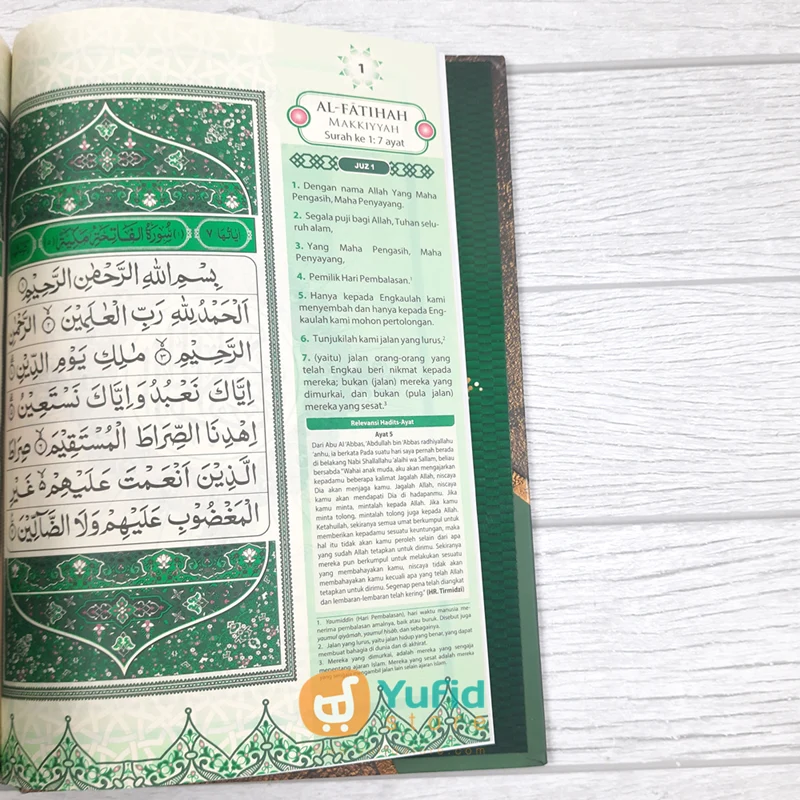 اٰيَاتُهَا ٧ (١) سُوْرَةُ الْفَاتِحَةِ مَكِّيَّةٌ
بِسْمِ اللّٰهِ الرَّحْمٰنِ الرَّحِيْمِ ١
اَلْحَمْدُ لِلّٰهِ رَبِّ الْعٰلَمِيْنَ ٢ الرَّحْمٰنِ
الرَّحِيْمِ ٣ مٰلِكِ يَوْمِ الدِّيْنِ ٤
اِيَّاكَ نَعْبُدُ وَاِيَّاكَ نَسْتَعِيْنُ ٥
اِهْدِنَا الصِّرَاطَ الْمُسْتَقِيْمَ ٦ صِرَاطَ
الَّذِيْنَ اَنْعَمْتَ عَلَيْهِمْ غَيْرِ
الْمَغْضُوْبِ عَلَيْهِمْ وَلَا الضَّاۤلِّيْنَ ٧
1
AL-FĀTIHAH
MAKKIYYAH
Surah ke 1: 7 ayat
JUZ 1
1. Dengan nama Allah Yang Maha
Pengasih, Maha Penyayang.
2. Segala puji bagi Allah, Tuhan selu-
ruh alam,
3. Yang Maha Pengasih, Maha
Penyayang,
4. Pemilik Hari Pembalasan.1
5. Hanya kepada Engkaulah kami
menyembah dan hanya kepada Eng-
kaulah kami mohon pertolongan.
6. Tunjukilah kami jalan yang lurus,2
7. (yaitu) jalan orang-orang yang
telah Engkau beri nikmat kepada
mereka; bukan (jalan) mereka yang
dimurkai, dan bukan (pula jalan)
mereka yang sesat.3
Relevansi Hadits-Ayat
Ayat 5
Dari Abu Al 'Abbas, 'Abdullah bin 'Abbas radhiyallahu
'anhu, ia berkata Pada suatu hari saya pernah berada
di belakang Nabi Shallallahu 'alaihi wa Sallam, beliau
bersabda "Wahai anak muda, aku akan mengajarkan
kepadamu beberapa kalimat Jagalah Allah, niscaya
Dia akan menjaga kamu. Jagalah Allah, niscaya
kamu akan mendapati Dia di hadapanmu. Jika
kamu minta, mintalah kepada Allah. Jika kamu
minta tolong, mintalah tolong juga kepada Allah.
Ketahullah, sekiranya semua umat berkumpul untuk
memberikan kepadamu sesuatu keuntungan, maka
hal itu tidak akan kamu peroleh selain dari apa
yang sudah Allah tetapkan untuk dirimu. Sekiranya
mereka pun berkumpul untuk melakukan sesuatu
yang membahayakan kamu, niscaya tidak akan
membahayakan kamu kecuali apa yang telah Allah
tetapkan untuk dirimu. Segenap pena telah diangkat
dan lembaran-lembaran telah kering." (HR. Tirmidzi)
1. Yaumiddīn (Hari Pembalasan), hari waktu manusia me-
nerima pembalasan amalnya, baik atau buruk. Disebut juga
yaumul qiyāmah, yaumul hisāb, dan sebagainya.
2. Jalan yang lurus, yaitu jalan hidup yang benar, yang dapat
membuat bahagia di dunia dan di akhirat.
3. Mereka yang dimurkai, adalah mereka yang sengaja
menentang ajaran Islam. Mereka yang sesat adalah mereka
yang sengaja mengambil jalan lain selain ajaran Islam.
Yufid
store